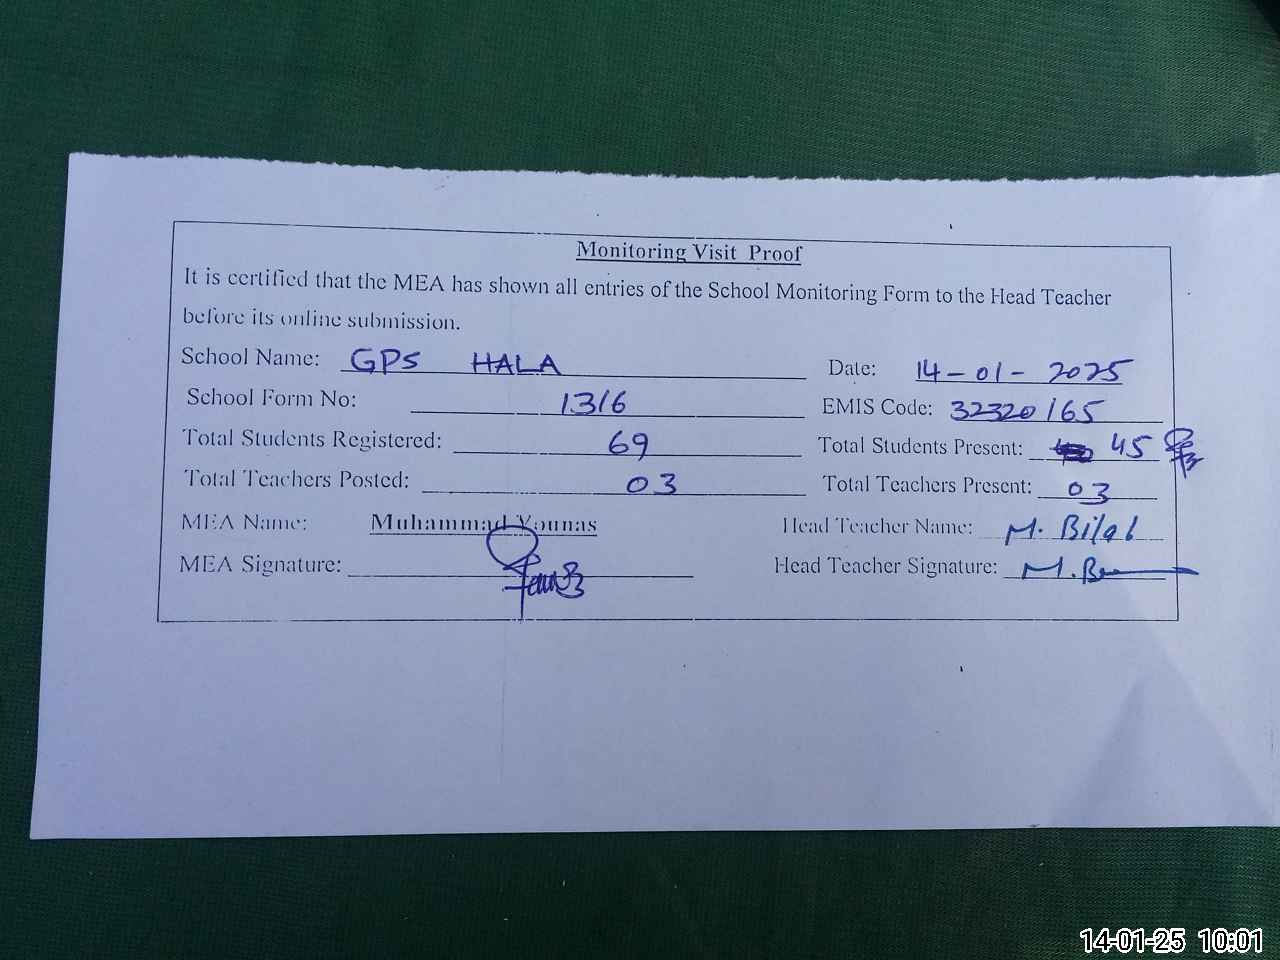 Monitoring Visit Proof
It is certified that the MEA has shown all entries of the School Monitoring Form to the Head Teacher
before its online submission.
School Name: GPS HALA Date: 14-01-2025
School Form No: 1316 EMIS Code: 32320165
Total Students Registered: 69 Total Students Present: 45
Total Teachers Posted: 03 Total Teachers Present: 03
MEA Name: Muhammad Younas Head Teacher Name: M. Bilal
MEA Signature: Head Teacher Signature: M.
14-01-25 10:01